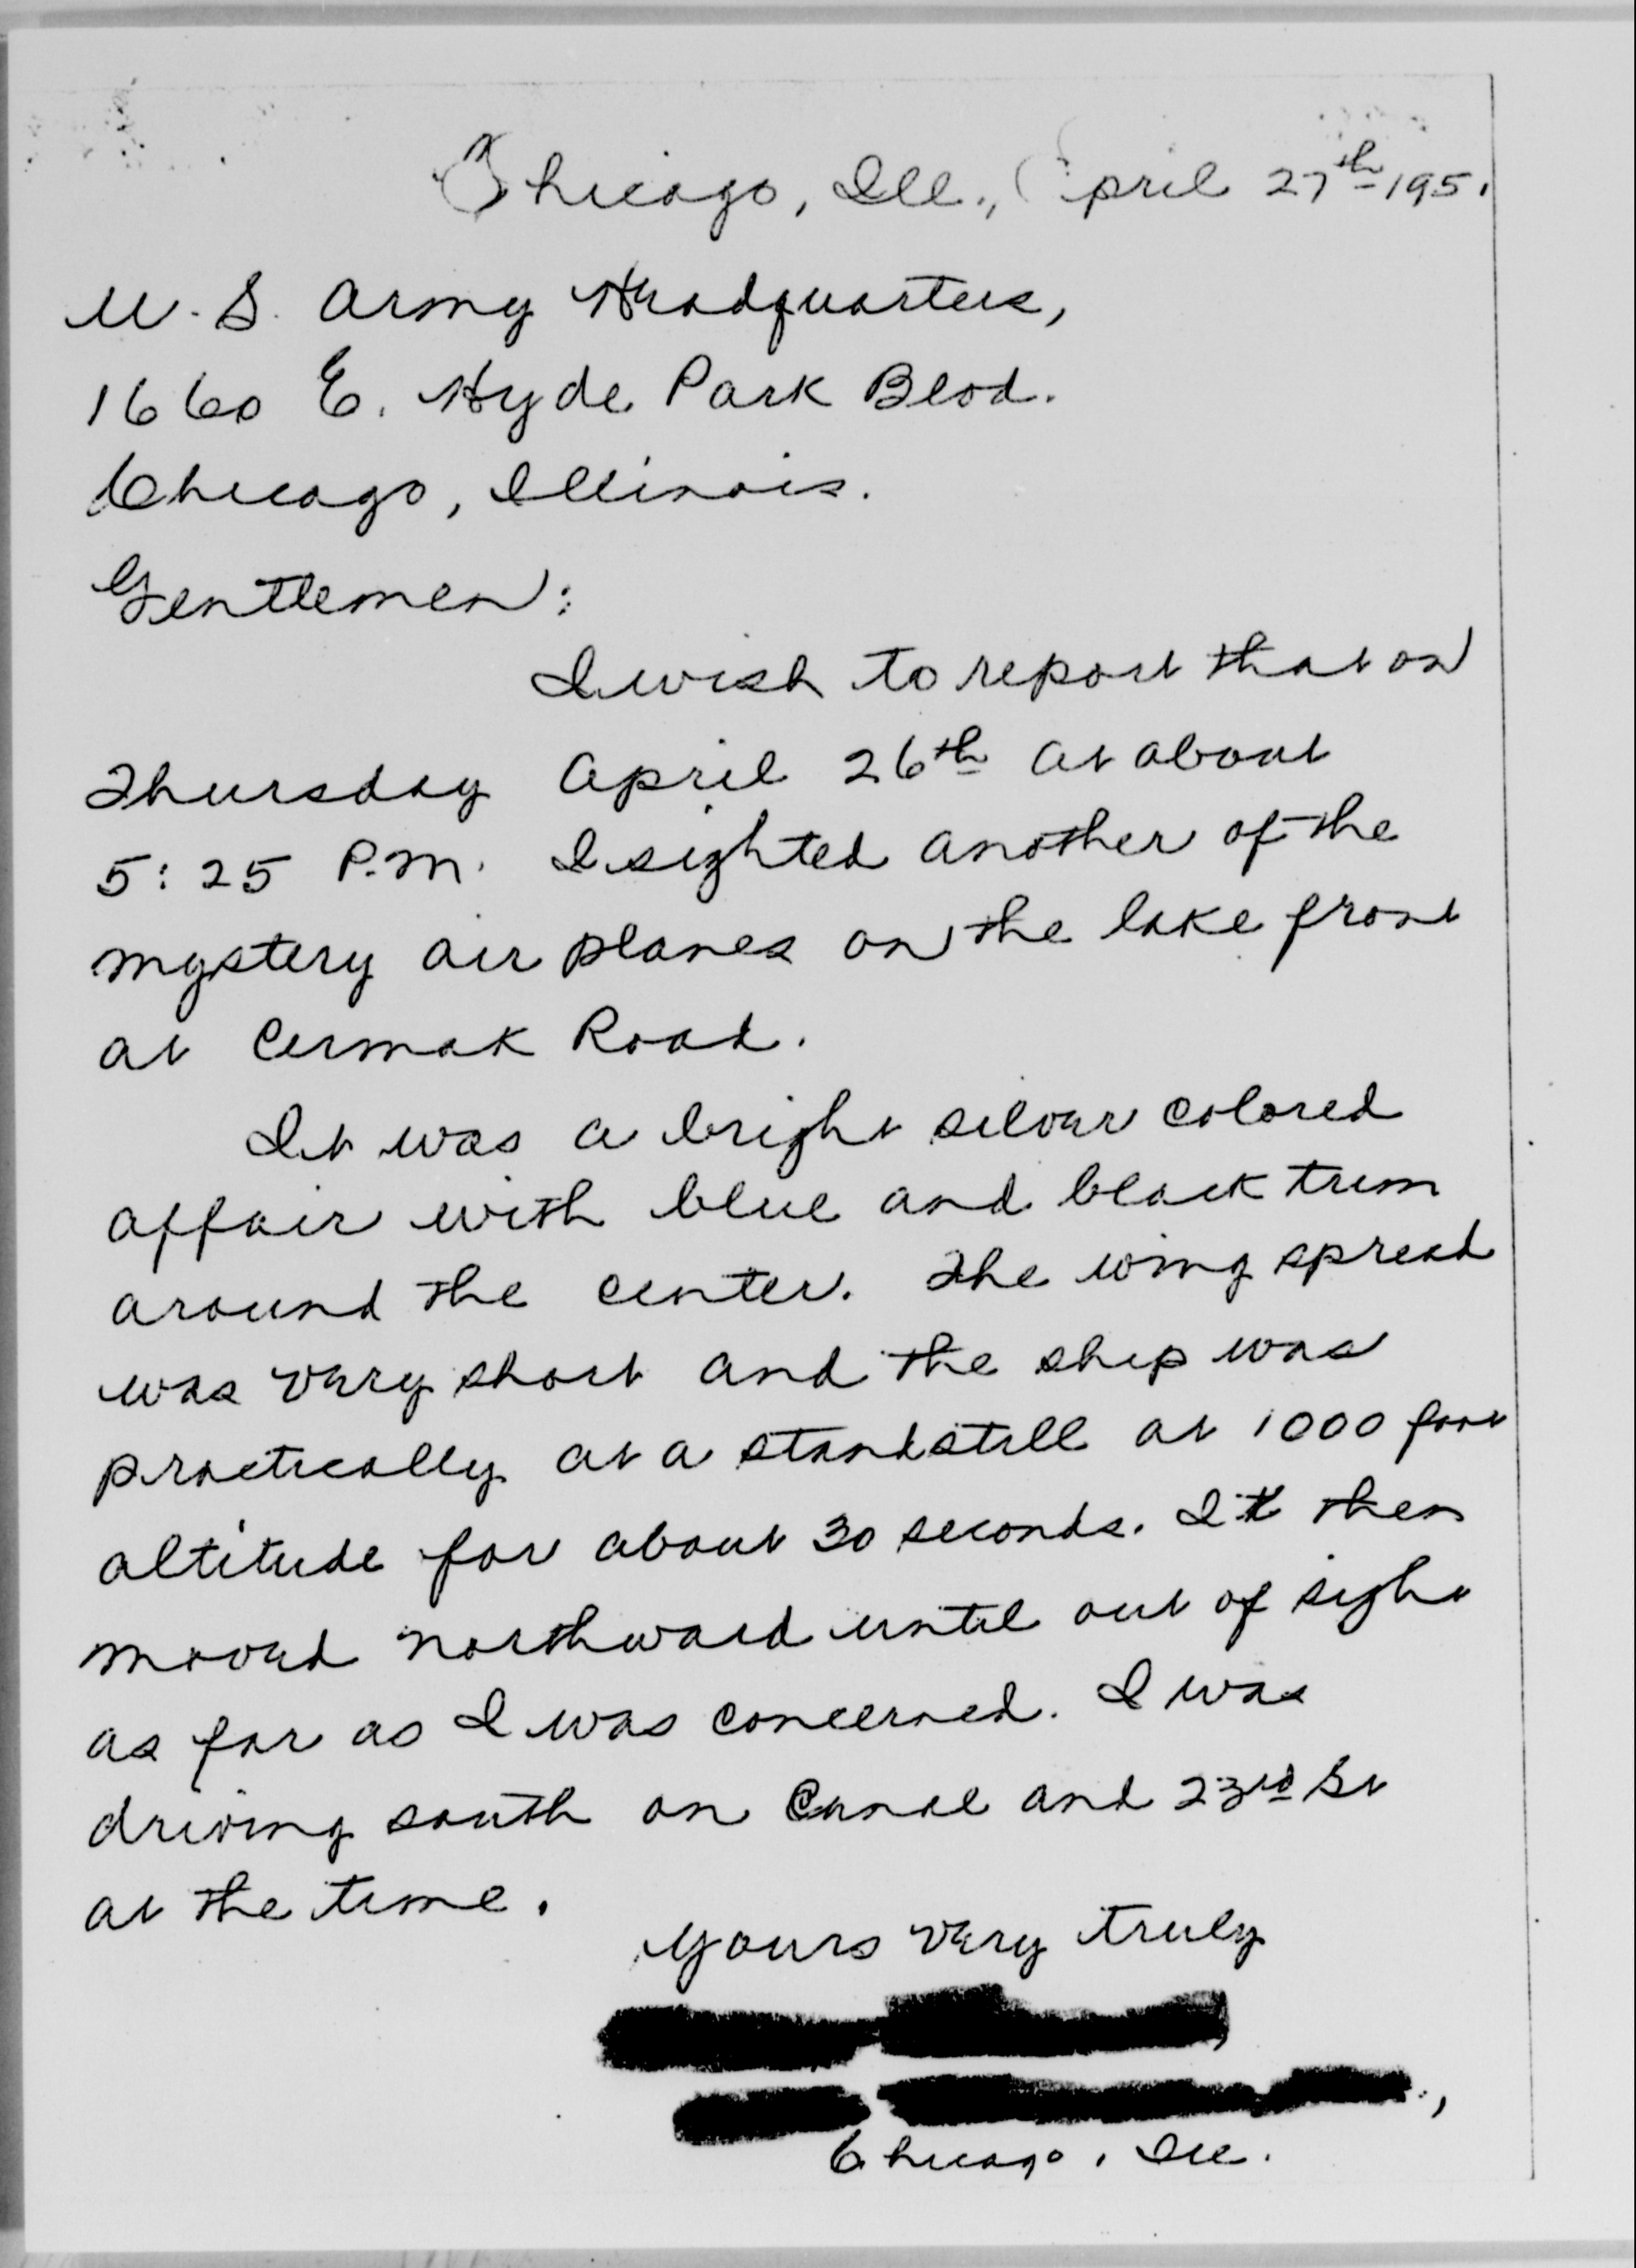 Chicago, Ill., April 27th 195
U. S. Army Headquarters,
1660 E. Hyde Park Blvd.
Chicago, Illinois.
Gentlemen:
I wish to report that on
Thursday April 26th at about
5:25 P.M. I sighted another of the
mystery air planes on the lake front
at Cermak Road.
It was a bright silver colored
affair with blue and black trim
around the center. The wing spread
was very short and the ship was
practically at a standstill at 1000 foot
altitude for about 30 seconds. It then
moved northward until out of sight
as far as I was concerned. I was
driving south on Canal and 23rd St
at the time.
Yours very truly
Chicago, Ill.